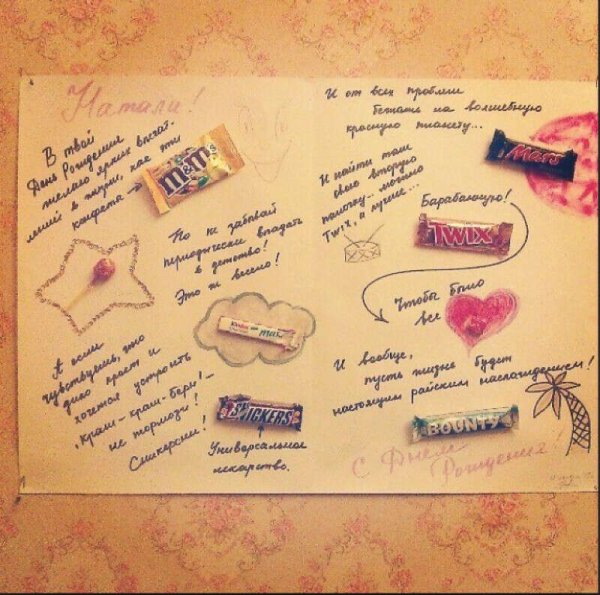 Натали!
В твой
День Рождения
желаю ярких впечат-
лений в жизни, как эти
конфеты
m&m's
Но не забывай
периодически впадать
в детство!
Это же весело!
Kinder
maxi
А если
чувствуешь, что
дико крест и
хочется устроить
"Краш-краш-беги!"-
не тормози!
Сникерсни!
SNICKERS
Универсальное
лекарство.
И от всех проблем
бежать на волшебную
красную планету...
Mars
И найти там
свою вторую
палочку... можно
Twix, а лучше...
Барабанную!
TWIX
Чтобы было
все
И вообще,
пусть жизнь будет
настоящим райским наслаждением!
BOUNTY
С Днем
Рождения!